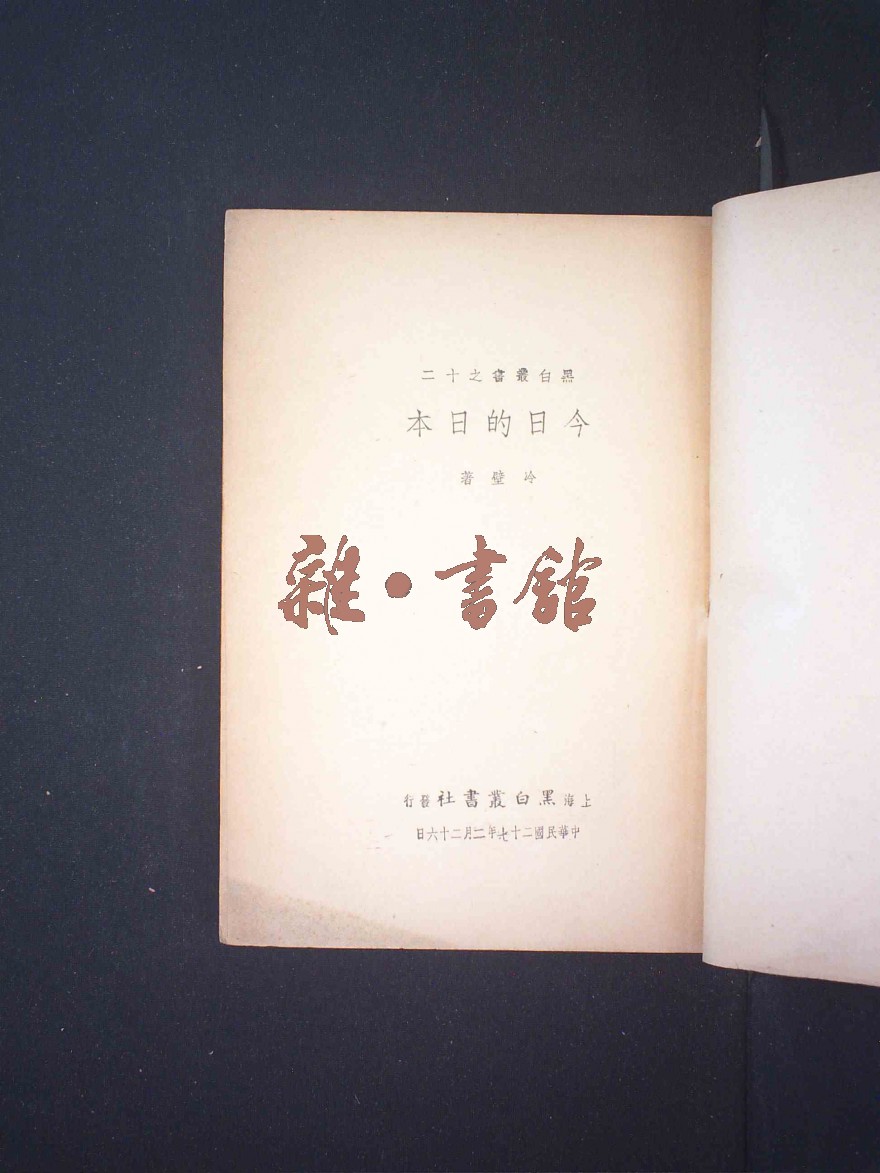 黑白叢書之十二
今日的日本
冷壁著
雜·書館
上海黑白叢書社發行
中華民國二十七年二月二十六日